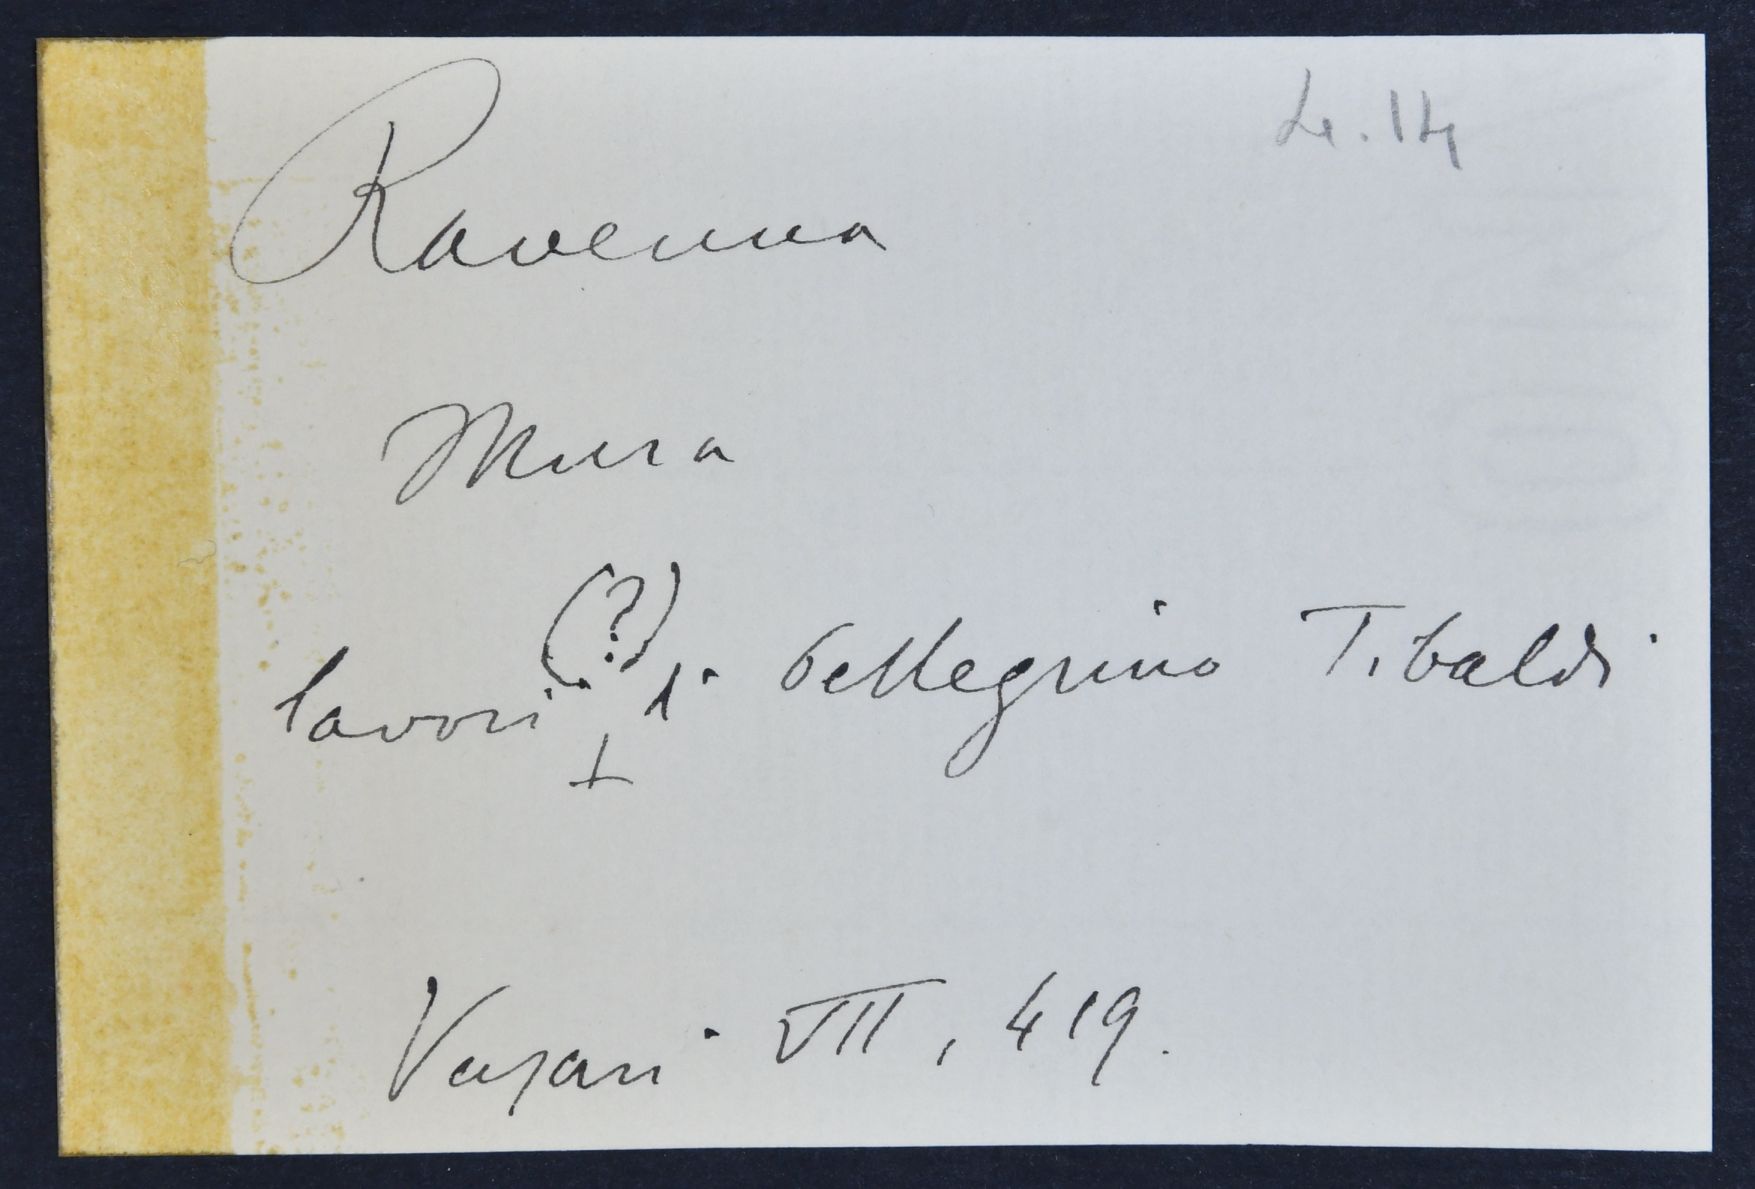 4.14
Ravenna
Mura
lavori (?) di Pellegrino Tibaldi
Vasari VII, 419.